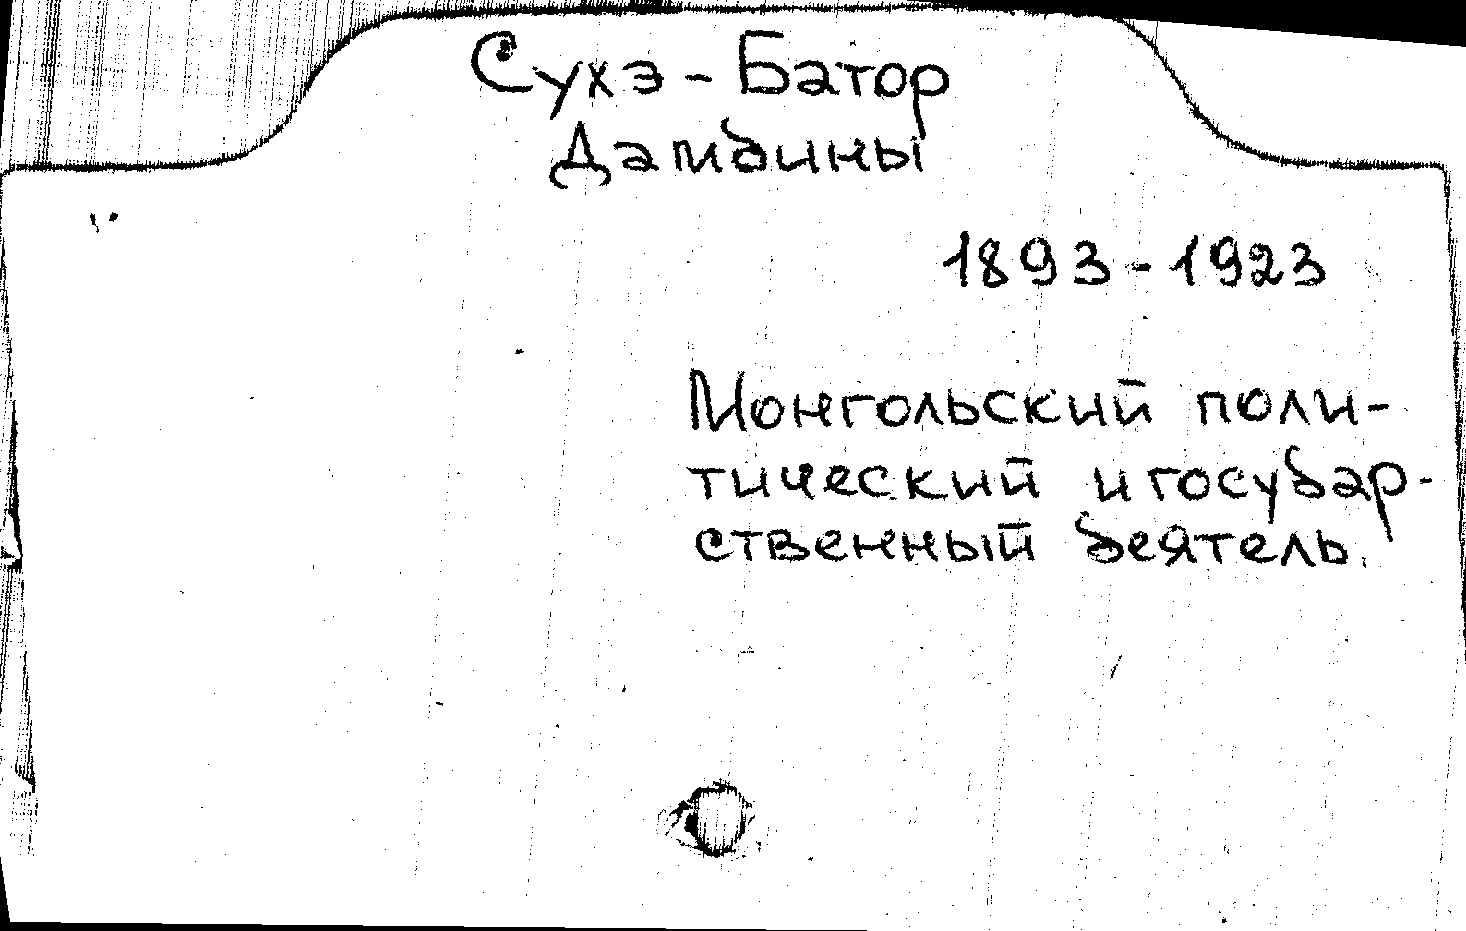 Сухэ-Батор
Дамдины
1893-1923
Монгольский поли-
тический и государ-
ственный деятель.